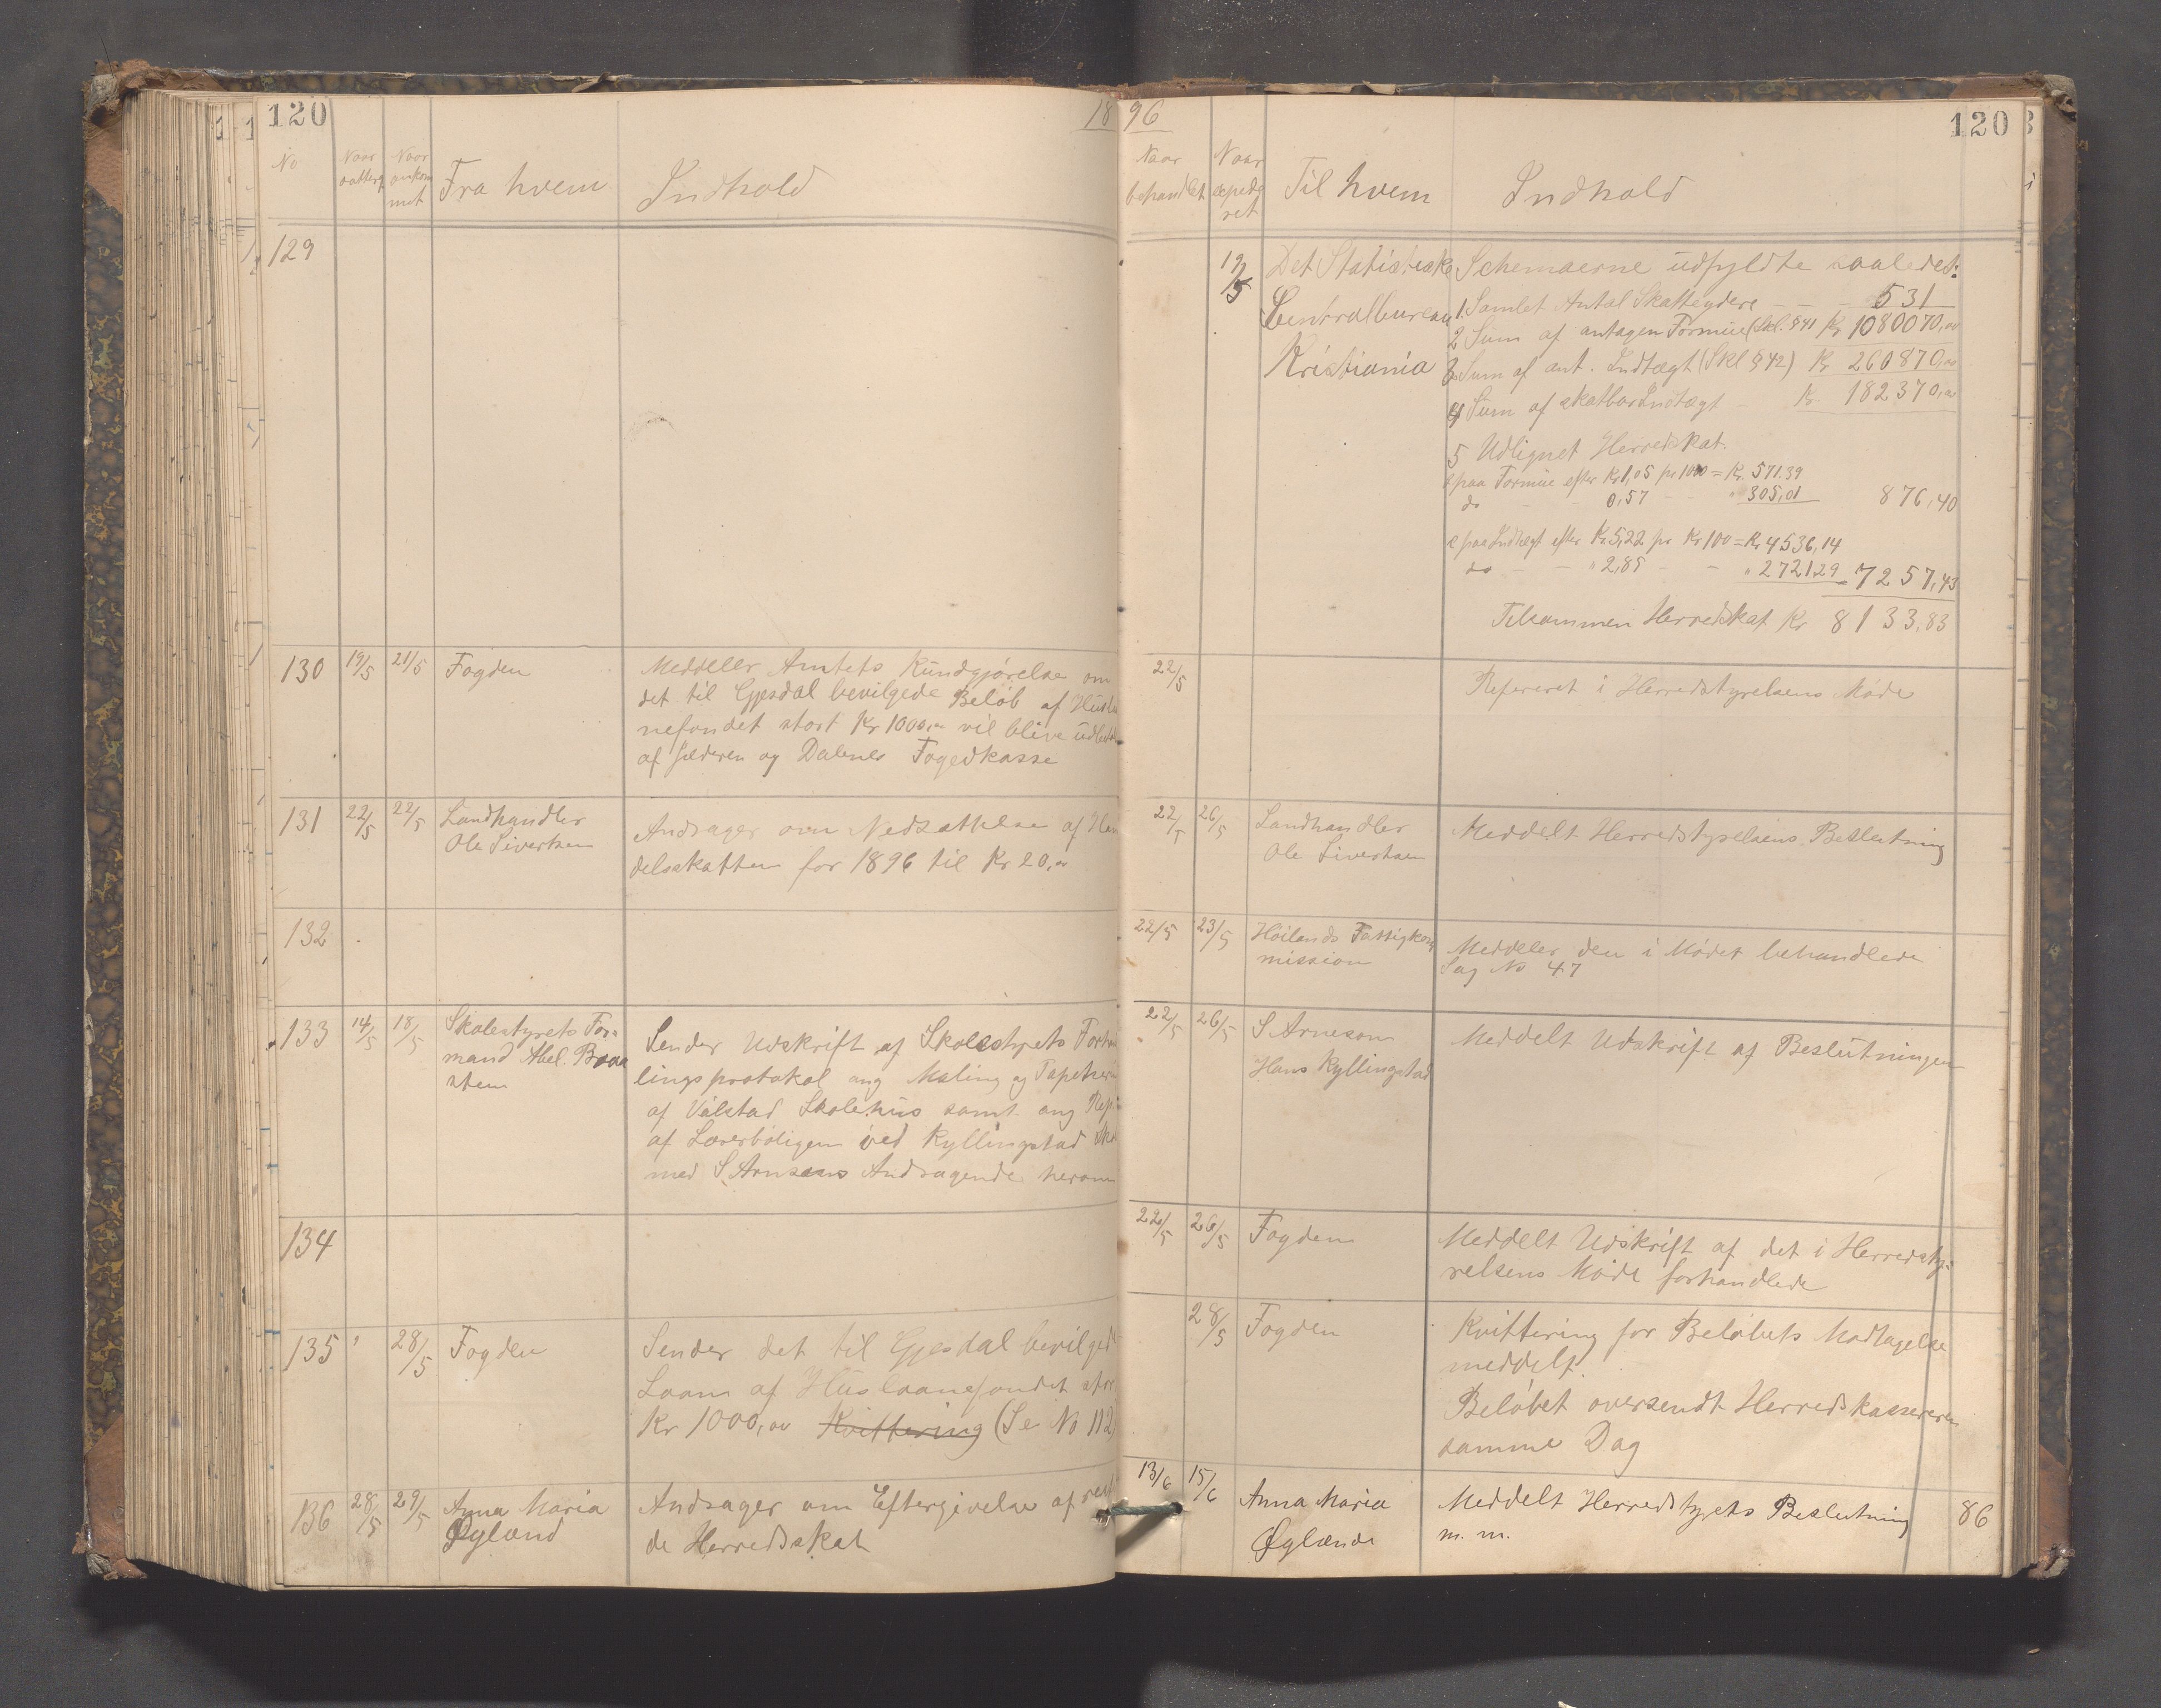 120
18
No
Naar
datterg
Naar
ankom
met
Fra hvem
Indhold
129
130 19/5 21/5 Fogden
Meddeler Amtets Kundgjørelse om
det til Gjesdal bevilgede Beløb af Husla
nefondet stort Kr 1000,00 vil blive udbet
af Jæderen og Dalenes Fogedkasse
131 22/5 22/5 Landhandler
Ole Sivertsen
Andrager om Nedsættelse af Han
delsskatten for 1896 til Kr 20,00
132
133 14/5 18/5 Skolestyrets For-
mand Abel Braa
stein
Sender Udskrift af Skolestyrets Forha
lingsprotokol ang Maling og Tapetser
af Vølstad Skolehus samt ang Rep
af Lærerboligen ved Kyllingstad Sko
med S. Arnesens Andragende herom
134
135 28/5 Fogden
Sender det til Gjesdal bevilged
Laan af Huslaanefondet stor
Kr 1000,00 Kvittering (Se No 112
136 28/5 29/5 Anna Maria
Øgland
Andrager om Eftergivelse af rest
de Herredsskat
96
120
Naar
behandlet
Naar
expede
ret
Til hvem
Indhold
19/5 Det Statistiske
Centralbureau
Kristiania
Schemaerne udfyldte saaledes:
1. Samlet Antal Skatteydere - - - 531
2 Sum af antagen Formue (Skl. § 41 Kr 1080070,00
3. Sum af ant. Indtægt (Skl § 42) Kr 260870,00
4 Sum af skatbar Indtægt - Kr 182370,00
5 Udlignet Herredskat.
paa Formue efter Kr 1,05 pr 1000 = Kr. 571.39
do - - 0,57 - - " 305,01 876,40
paa Indtægt efter Kr 5,22 pr Kr 100 = Kr 4536,14
do - - " 2,85 - - " 2721,29 7257,43
Tilsammen Herredskat Kr 8133,83
22/5 Refereret i Herredstyrelsens Møde
22/5 26/5 Landhandler
Ole Sivertsen
Meddelt Herredstyrelsens Beslutning
22/5 23/5 Høilands Fattigkom
mission
Meddeler den i Mødet behandlede
Sag No 47
22/5 26/5 S Arnesen
Hans Kyllingstad
Meddelt Udskrift af Beslutningen
22/5 26/5 Fogden
Meddelt Udskrift af det i Herredsty-
relsens Møde forhandlede
28/5 Fogden
Kvittering for Beløbets Modtagelse
meddelt.
Beløbet oversendt Herredskassereren
samme Dag
13/6 15/6 Anna Maria
Øglænde
Meddelt Herredstyrets Beslutning
m. m.
86